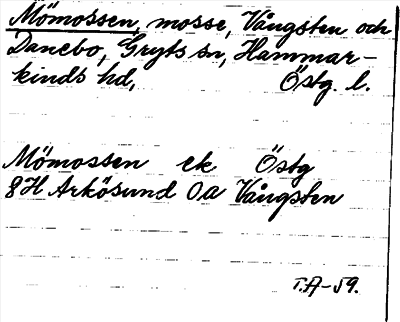 Mömossen, mosse, Vångsten och
Danebo, Gryts sn, Hammar-
kinds hd, Östg. l.
Mömossen ek Östg
8H Arkösund 0a Vångsten
T.A-59.